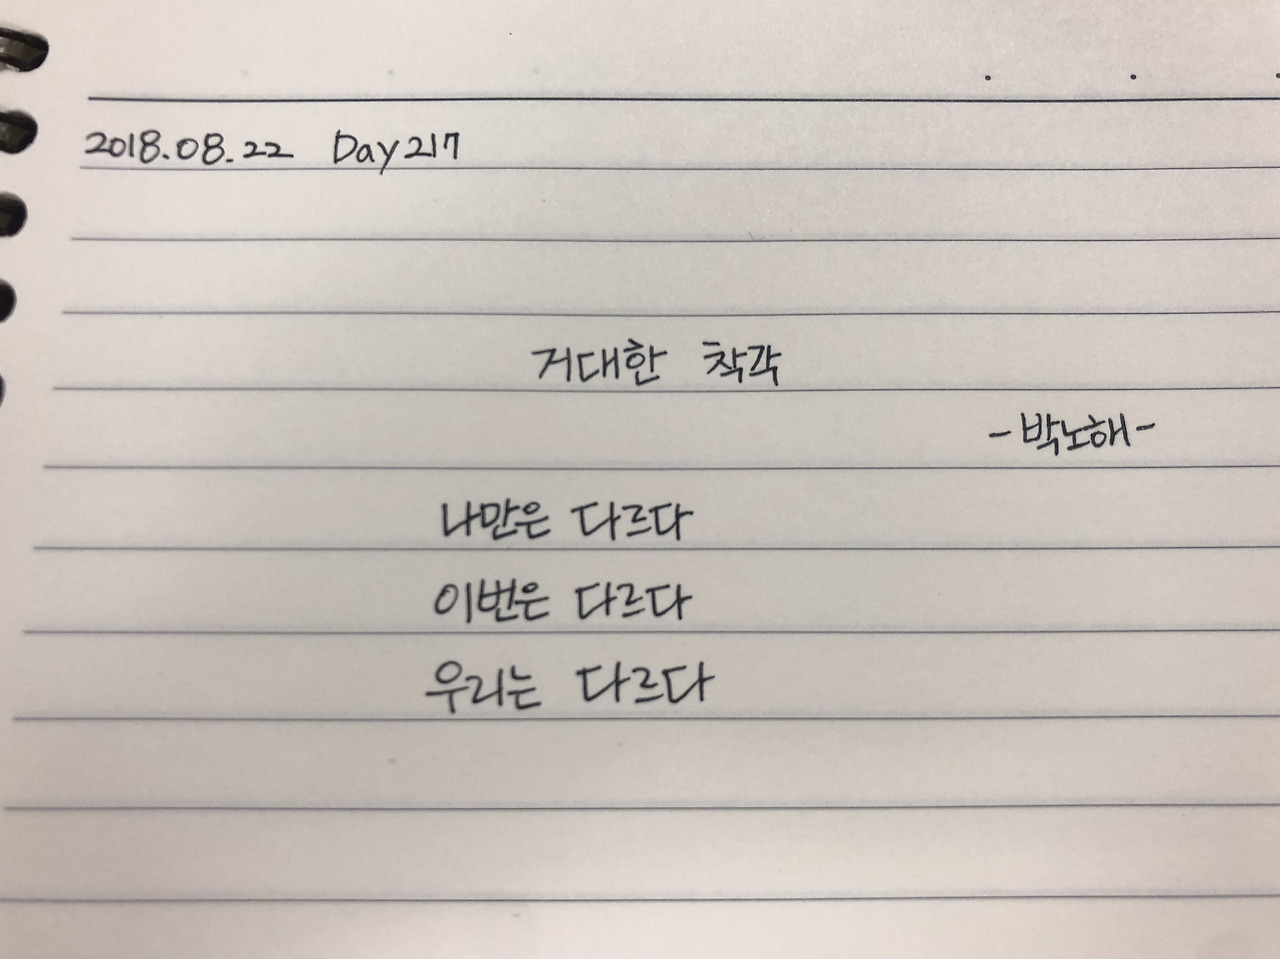 2018.08.22 Day217
거대한 착각
-박노해-
나만은 다르다
이번은 다르다
우리는 다르다